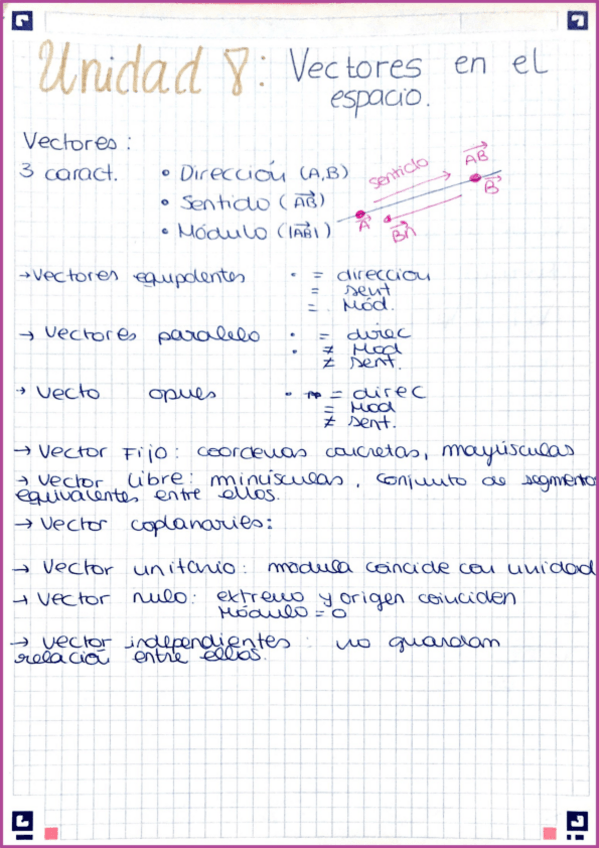 Unidad 8: Vectores en el
espacio.
Vectores:
3 caract. • Dirección (A,B)
• Sentido (AB)
• Módulo (|AB|)
sentido
AB
B
A
BA
→ Vectores equipolentes • = direccion
= sent
= Mód.
→ Vectores paralelo • = direc
• ≠ Mod
≠ sent.
→ Vecto opues • = direc
= Mod
≠ sent.
→ Vector Fijo: coordenas concretas, mayúsculas
→ Vector libre: minúsculas, conjunto de segmento
equivalentes entre ellos.
→ Vector coplanaries:
→ Vector unitario: modula coincide con unidad
→ Vector nulo: extremo y origen coinciden
Módulo = 0
→ vector independientes: no guardan
relació entre ellos.